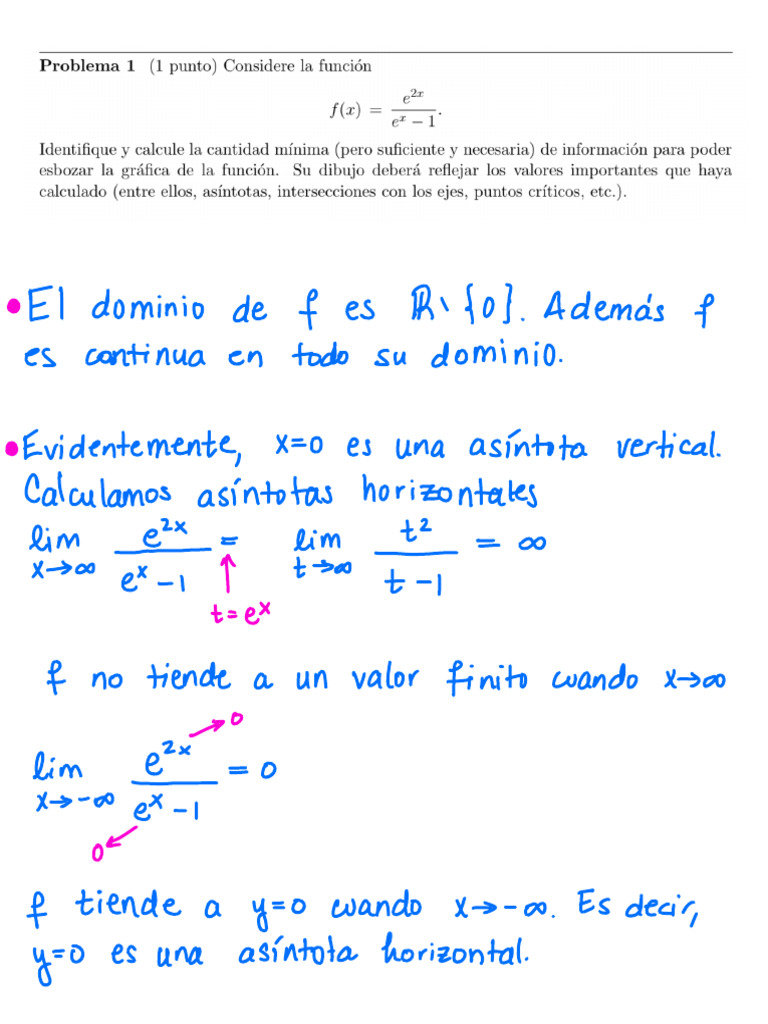 Problema 1 (1 punto) Considere la función
f(x) = e^{2x} / (e^x − 1).
Identifique y calcule la cantidad mínima (pero suficiente y necesaria) de información para poder
esbozar la gráfica de la función. Su dibujo deberá reflejar los valores importantes que haya
calculado (entre ellos, asíntotas, intersecciones con los ejes, puntos críticos, etc.).
• El dominio de f es ℝ∖{0}. Además f
es continua en todo su dominio.
• Evidentemente, x=0 es una asíntota vertical.
Calculamos asíntotas horizontales
lim_{x→∞} e^{2x} / (e^x − 1) = lim_{t→∞} t^2 / (t − 1) = ∞
t = e^x
f no tiende a un valor finito cuando x→∞
→ 0
lim_{x→−∞} e^{2x} / (e^x − 1) = 0
0 ←
f tiende a y=0 cuando x→−∞. Es decir,
y=0 es una asíntota horizontal.